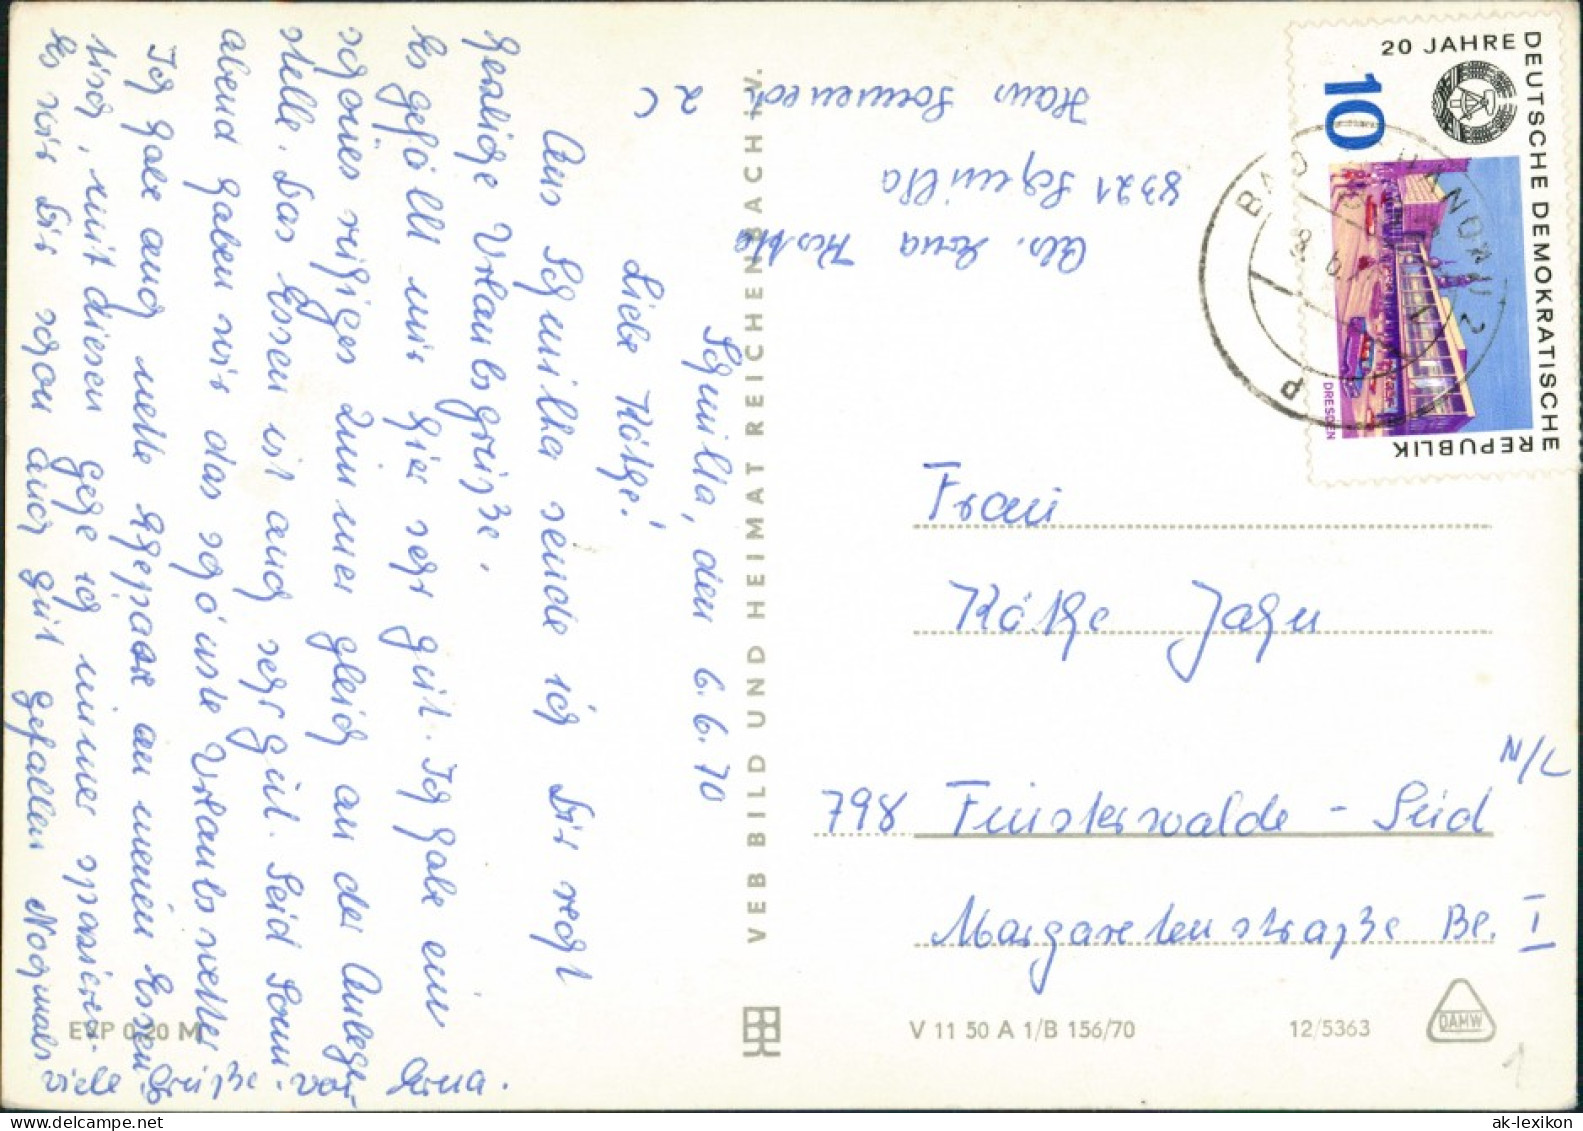 Schmilka, den 6.6.70
Liebe Käthe!
Aus Schmilka sende ich Dir recht
herzliche Urlaubsgrüße.
Es gefällt mir hier sehr gut. Ich habe ein
schönes ruhiges Zimmer gleich an der Anlege-
stelle. Das Essen ist auch sehr gut. Seid Sonn-
abend haben wir das schönste Urlaubswetter.
Ich habe auch nette Ehepaar an meinen Essen-
tisch, mit diesen gehe ich immer spazieren.
Es wir Dir schon auch gut gefallen Nochmals
viele Grüße von Erna.
Abs. Erna
8321 Schmilka
Haus Sonneneck
20 JAHRE DEUTSCHE DEMOKRATISCHE
REPUBLIK
10
DRESDEN
BAD SCHANDAU 2
VEB BILD UND HEIMAT REICHENBACH i.V.
Frau
Käthe Jahn
N/L
798 Finsterwalde - Süd
Margaretenstraße Be. I
EVP 0,20 M
V 11 50 A 1/B 156/70
12/5363
DAMW
1
ak-lexikon